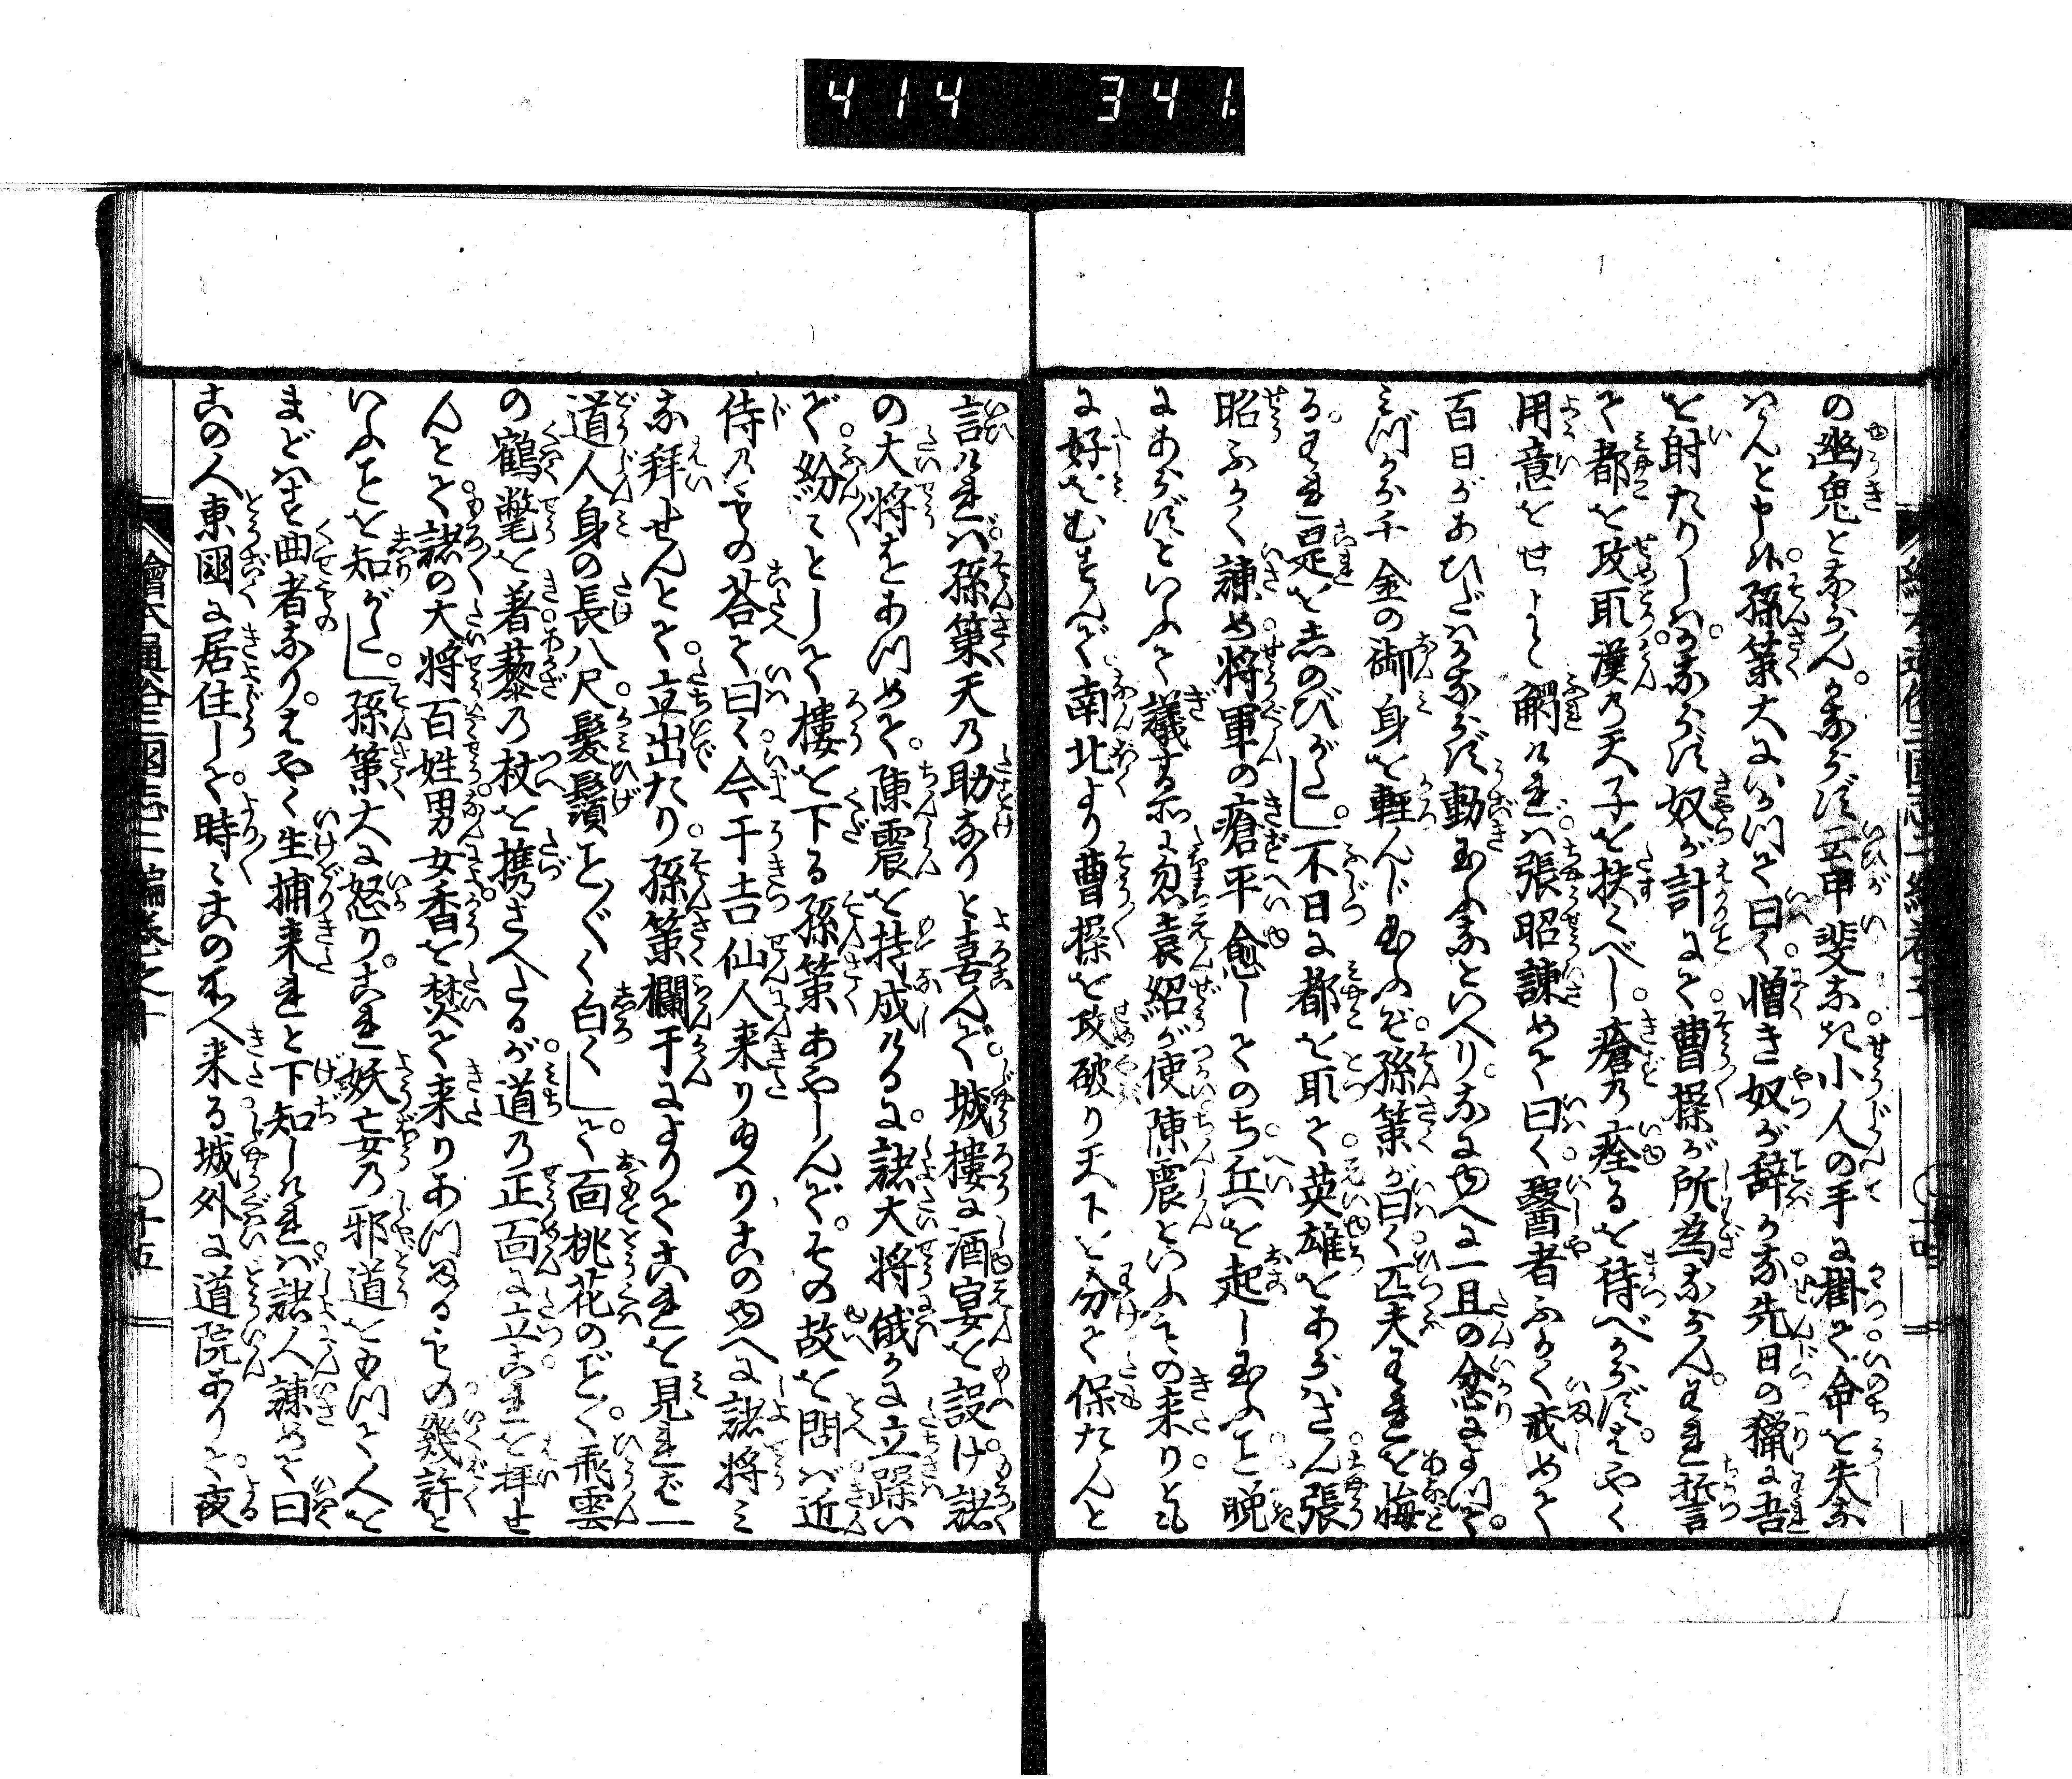 414 341
の幽鬼とならん。かならず云甲斐なき小人の手に掛て命を失な
はんと申ス。孫策大にいかつて曰く憎き奴が辞かな先日の猟に吾
を射たりしはかならず奴が計にて曹操が所為ならん。われ誓
て都を攻取漢の天子を扶くべし。瘡の痊るを待べからず。はやく
用意をせよと觸ければ張昭諫めて曰く醫者ふかく戒めて
百日があひだはかならず動玉ふなといへり。なにゆへに一旦の忿によつて。
みづから千金の御身を軽んじ玉ふぞ。孫策が曰く匹夫われを侮
る。われ是を忍のびがたし。不日に都を取て英雄をあらはさん張
昭ふかく諫め。将軍の瘡平愈してのち。兵を起し玉ふとも晩
にあらずといふて議する所に忽袁紹が使陳震といふもの来りとも
に好をむすんで南北より曹操を攻破り天下を分て保たんと
言ければ孫策天の助なりと喜んで。城樓に酒宴を設け。諸
の大将をあつめて。陳震を持成けるに。諸大将俄かに立躁い
で。紛々として樓を下る孫策あやしんで。その故を問ば近
侍のもの荅て曰く今于吉仙人来り玉へりこのゆへに諸将ミ
な拜せんとて立出たり。孫策欄干によりてこれを見れば一
道人身の長八尺髮鬚ことごとく白くして。面桃花のごとく。飛雲
の鶴氅を着藜の杖を携さへたるが。道の正面に立これを拜せ
んとて。諸の大将百姓男女香を焚て来りあつまるもの幾許と
いふことを知がたし。孫策大に怒り。これ妖妄の邪道をもつて人を
まどはす曲者なり。はやく生捕来れと下知しければ。諸人諫めて曰
この人東國に居住して。時々この所へ来る城外に道院ありて。夜
繪本通俗三國志二編巻之十
〇十五